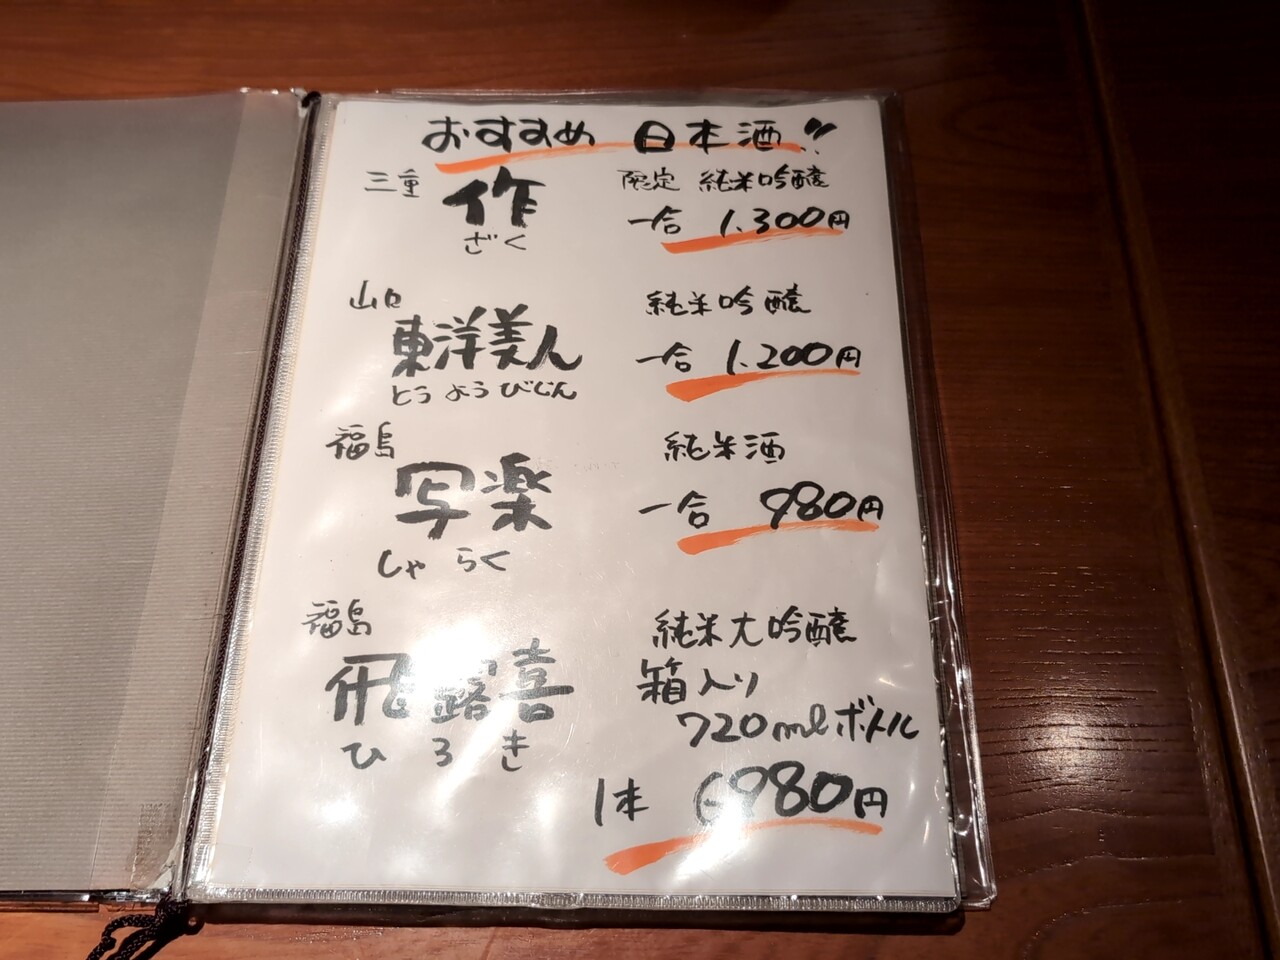 おすすめ 日本酒!!
三重 作 限定 純米吟醸
ざく 一合 1.300円
山口 純米吟醸
東洋美人 一合 1.200円
とうようびじん
福島 純米酒
写楽 一合 980円
しゃらく
福島 純米大吟醸
飛露喜 箱入り
ひろき 720mlボトル
1本 6980円